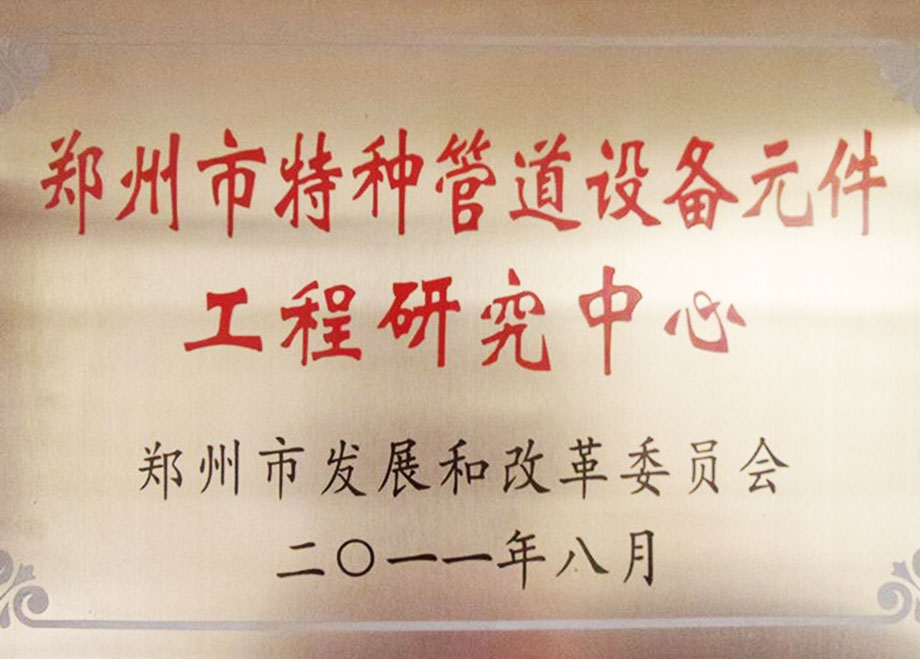 郑州市特种管道设备元件
工程研究中心
郑州市发展和改革委员会
二〇一一年八月